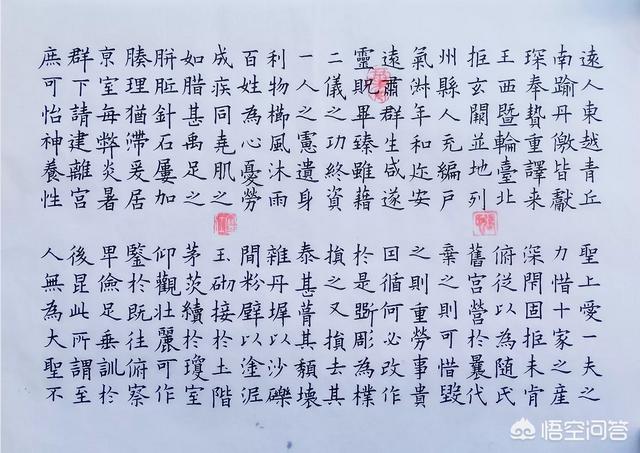 遠人東越青丘
南踰丹儌皆獻
琛奉贄重譯來
王西暨輪臺北
拒玄闕並地列
州縣人充編戶
氣淑年和迩安
遠肅群生咸遂
靈貺畢臻雖藉
二儀之功終資
一人之慮遺身
利物櫛風沐雨
百姓為心憂勞
成疾同堯肌之
如腊甚禹足之
胼胝針石屢加
腠理猶滯爰居
京室每弊炎暑
群下請建離宮
庶可怡神養性
聖上愛一夫之
力惜十家之產
深閇固拒未肯
俯從以為隨氏
舊宮營於曩代
棄之則可惜毀
之則重勞事貴
因循何必改作
於是斲彫為樸
損之又損去其
泰甚葺其頹壞
雜丹墀以沙礫
間粉壁以塗泥
玉砌接於土階
茅茨續於瓊室
仰觀壯麗可作
鑒於既往俯察
卑儉足垂訓於
後昆此所謂至
人無為大聖不
悟空问答